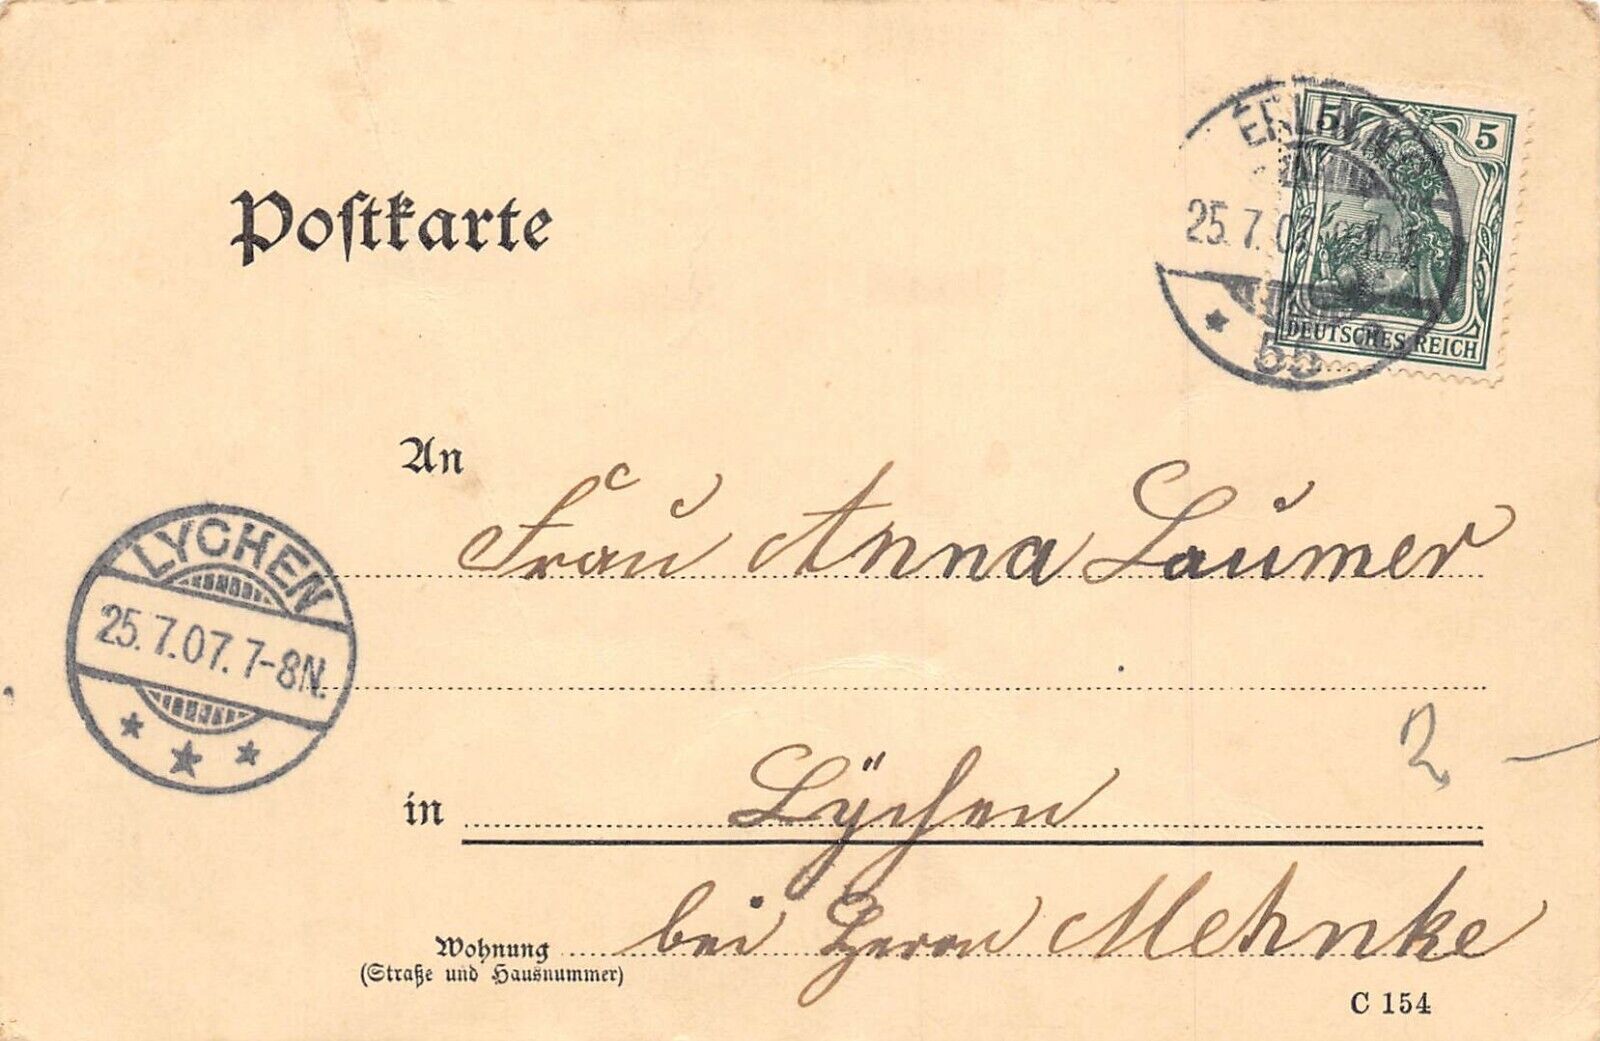 5 5
ERLIN.N.
25.7.07
DEUTSCHES REICH
55
Postkarte
An
Frau Anna Laumer
LYCHEN
25.7.07.7-8N.
in Lÿchen
2 —
Wohnung bei Herrn Mehnke
(Straße und Hausnummer)
C 154